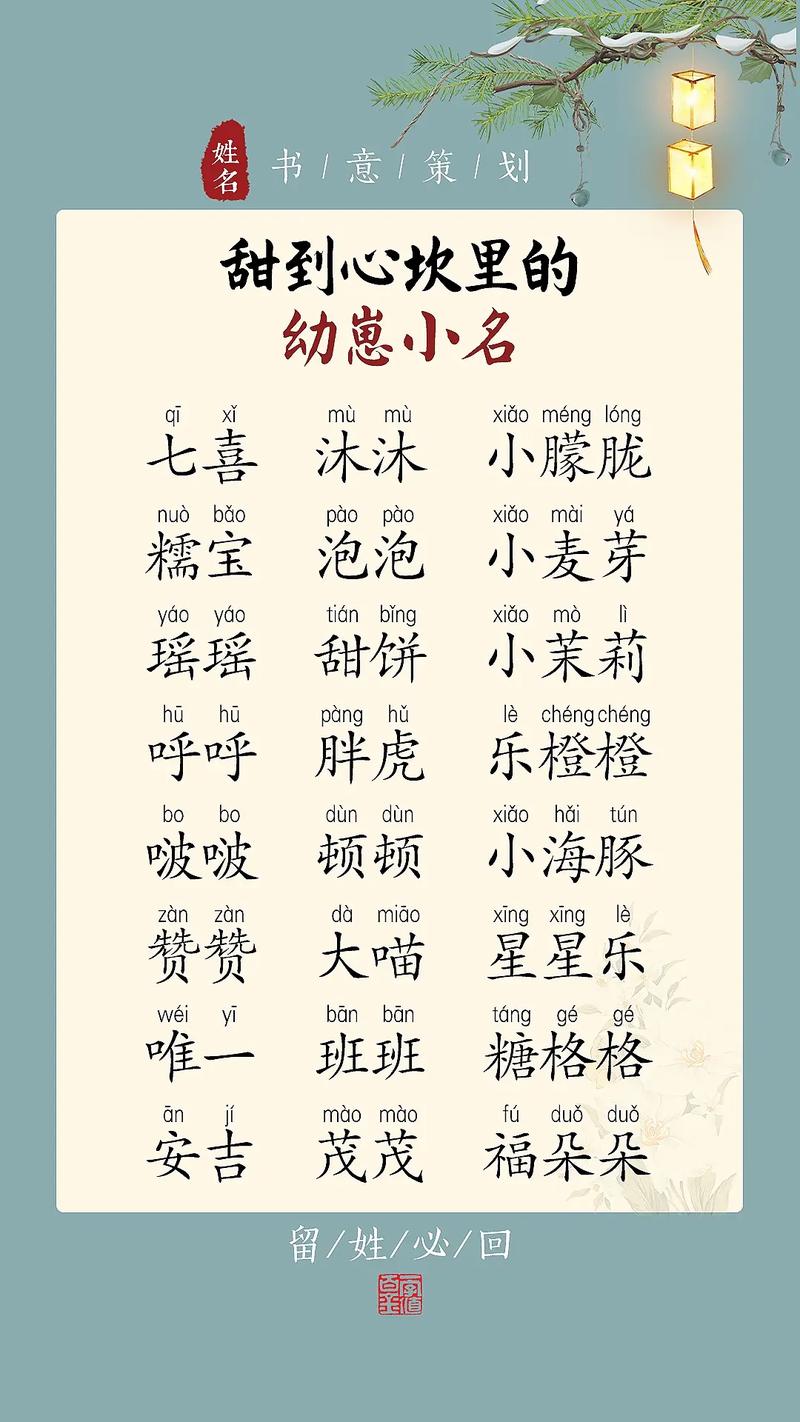 姓名
书/意/策/划
甜到心坎里的
幼崽小名
qī xǐ mù mù xiǎo méng lóng
七喜 沐沐 小朦胧
nuò bǎo pào pào xiǎo mài yá
糯宝 泡泡 小麦芽
yáo yáo tián bǐng xiǎo mò lì
瑶瑶 甜饼 小茉莉
hū hū pàng hǔ lè chéng chéng
呼呼 胖虎 乐橙橙
bo bo dùn dùn xiǎo hǎi tún
啵啵 顿顿 小海豚
zàn zàn dà miāo xīng xīng lè
赞赞 大喵 星星乐
wéi yī bān bān táng gé gé
唯一 班班 糖格格
ān jí mào mào fú duǒ duǒ
安吉 茂茂 福朵朵
留/姓/必/回
一字值百金